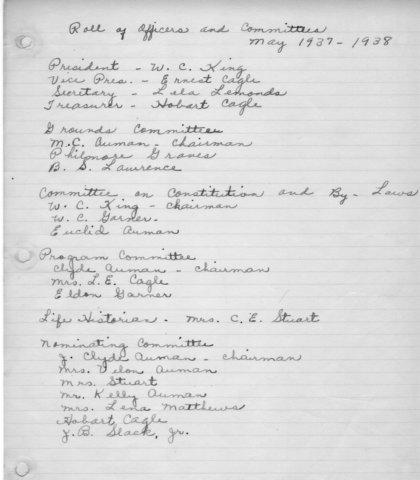 Roll of Officers and Committees
May 1937-1938
President - W. C. King
Vice Pres. - Ernest Cagle
Secretary - Lela Lemonds
Treasurer - Hobart Cagle
Grounds Committee
M.C. Auman - chairman
Philmore Graves
B. S. Lawrence
Committee on Constitution and By-Laws
W. C. King - chairman
W. C. Garner.
Euclid Auman
Program Committee
Clyde Auman - chairman
Mrs. L. E. Cagle
Eldon Garner
Life Historian - Mrs. C. E. Stuart
Nominating Committee
J. Clyde Auman - chairman
Mrs. Velon Auman
Mrs Stuart
Mr. Kelly Auman
Mrs. Lena Matthews
Hobart Cagle
J. B. Slack, Jr.